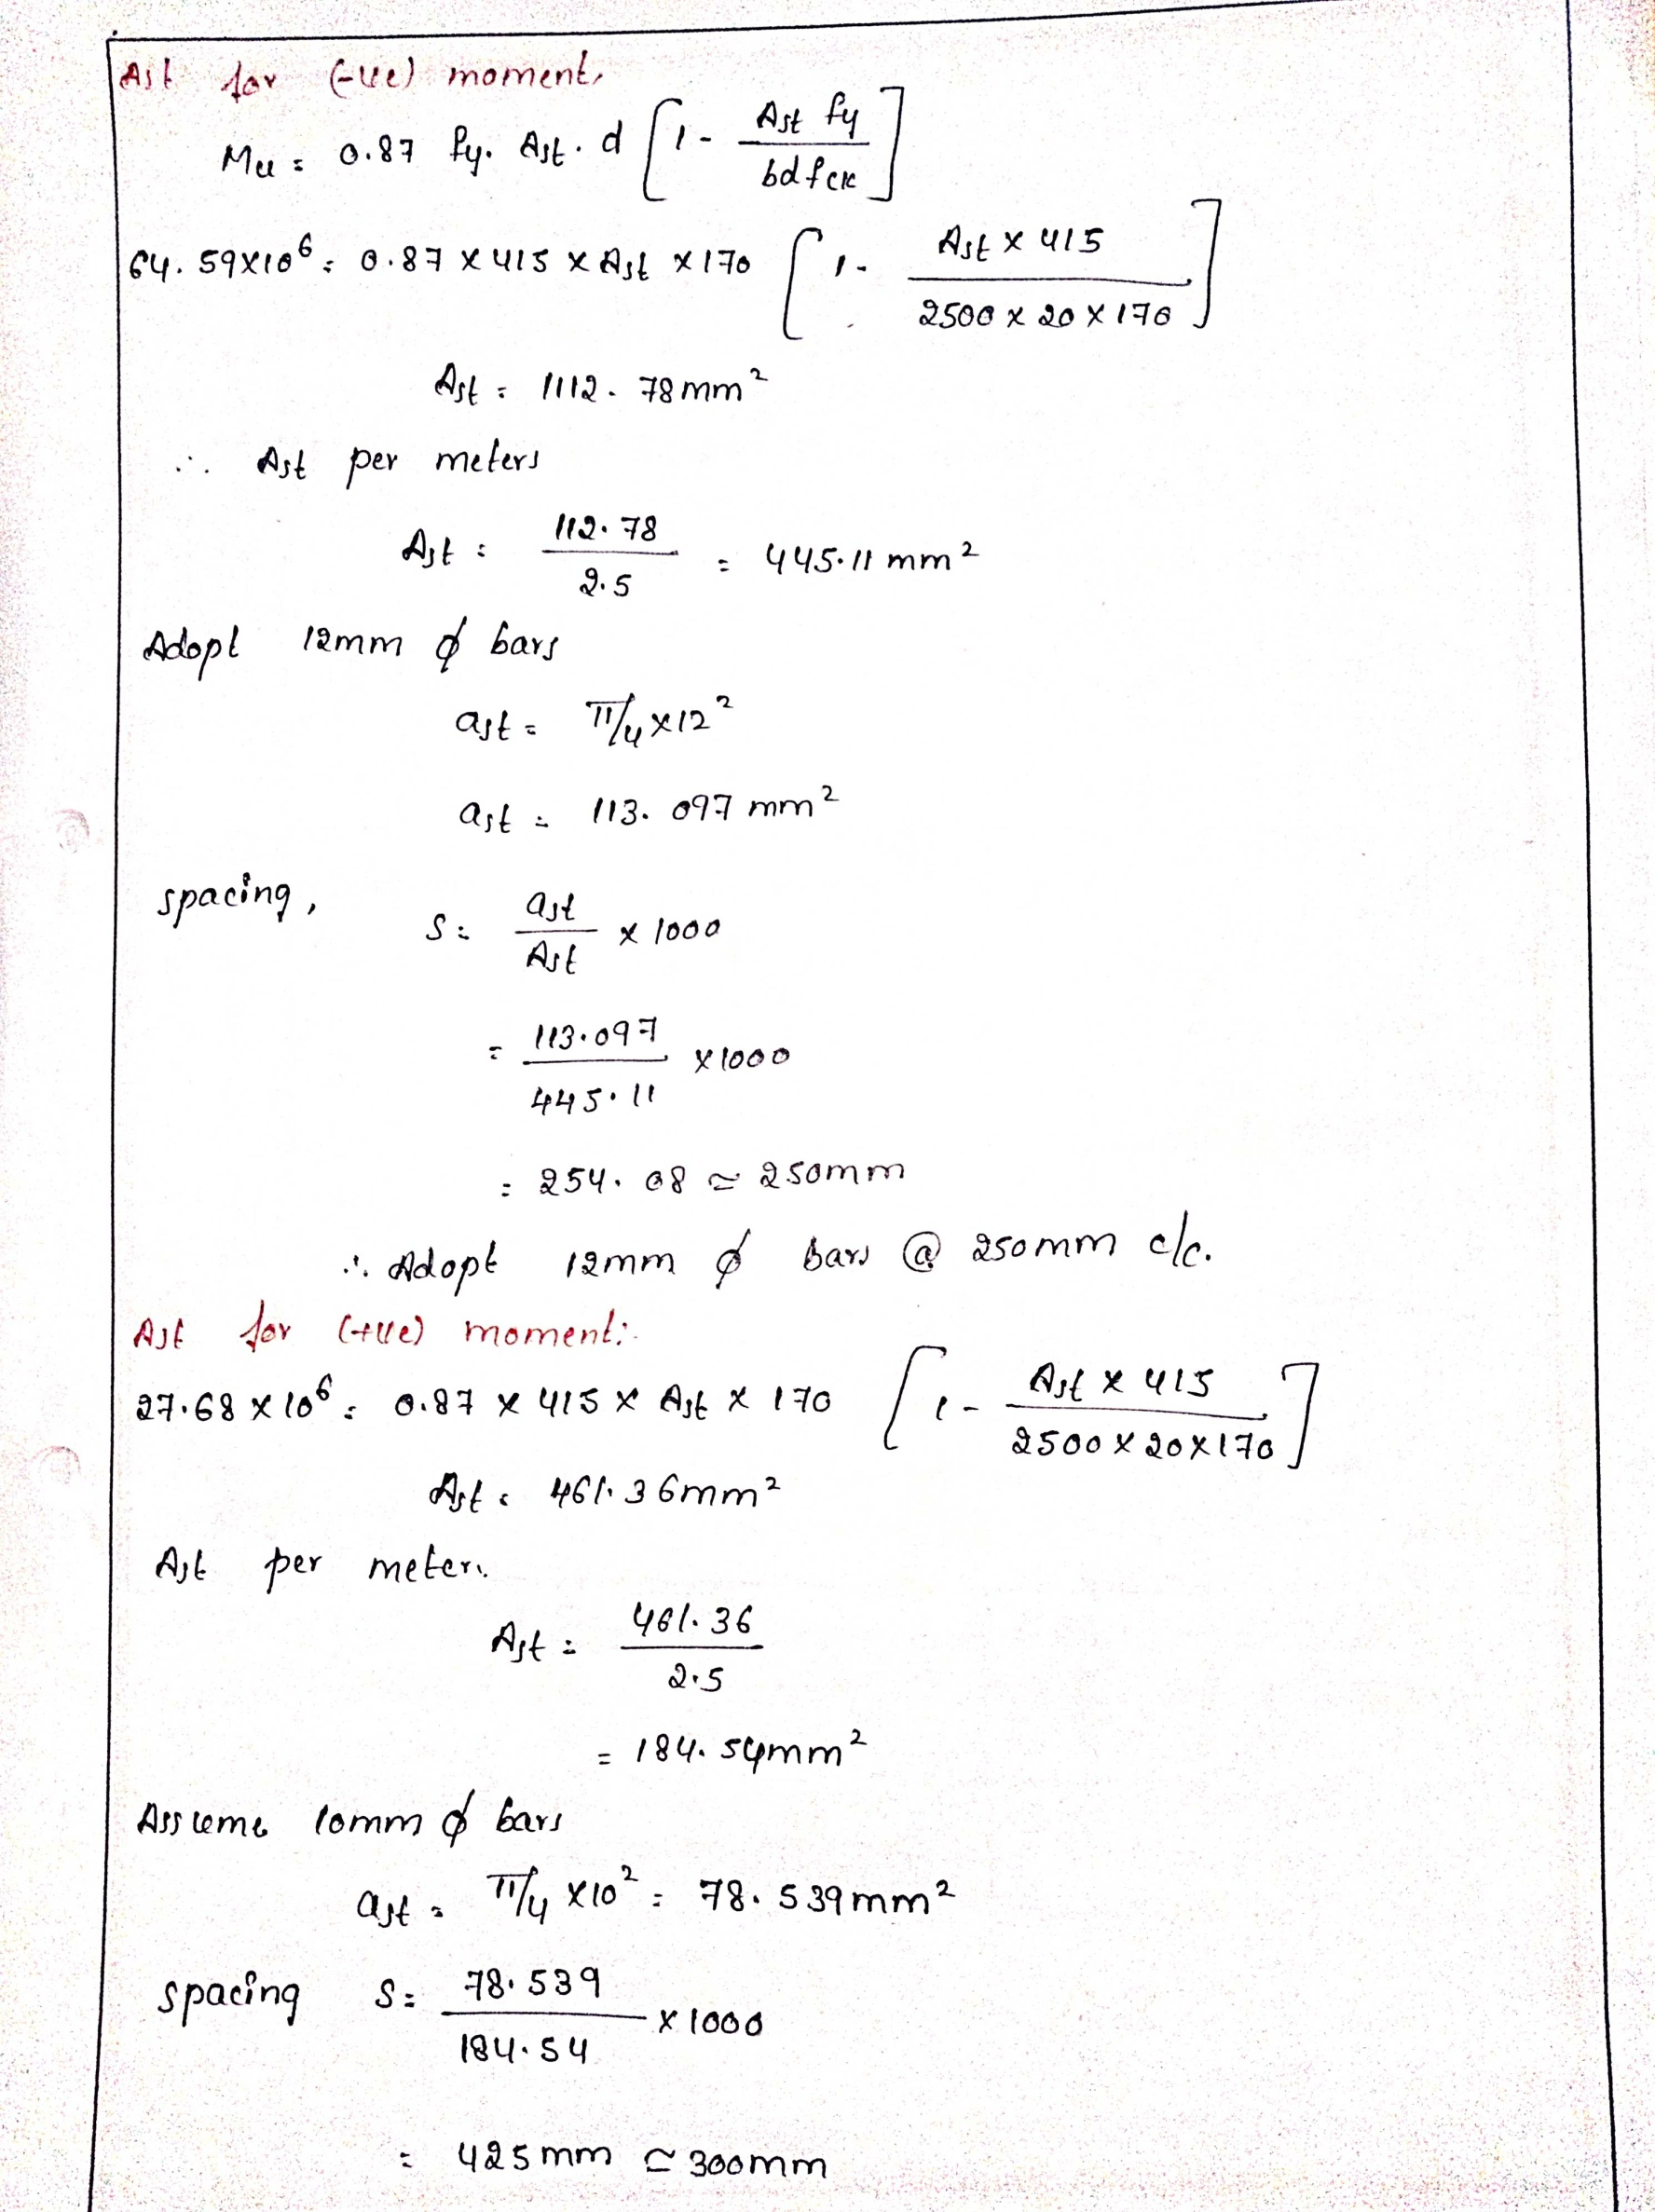 Ast for (-ve) moment,
Mu = 0.87 fy. Ast. d [1 - Ast fy / bd fck]
64.59×10⁶ = 0.87 × 415 × Ast × 170 [1 - Ast × 415 / 2500 × 20 × 170]
Ast = 1112.78mm²
∴ Ast per meters
Ast = 112.78 / 2.5 = 445.11 mm²
Adopt 12mm ϕ bars
ast = π/4 × 12²
ast = 113.097 mm²
spacing, S = ast / Ast × 1000
= 113.097 / 445.11 × 1000
= 254.08 ≃ 250mm
∴ Adopt 12mm ϕ bars @ 250mm c/c.
Ast for (+ve) moment:
27.68 × 10⁶ = 0.87 × 415 × Ast × 170 [1 - Ast × 415 / 2500 × 20 × 170]
Ast = 461.36mm²
Ast per meter.
Ast = 461.36 / 2.5
= 184.54mm²
Assume 10mm ϕ bars
ast = π/4 × 10² = 78.539mm²
spacing S = 78.539 / 184.54 × 1000
= 425mm ≃ 300mm